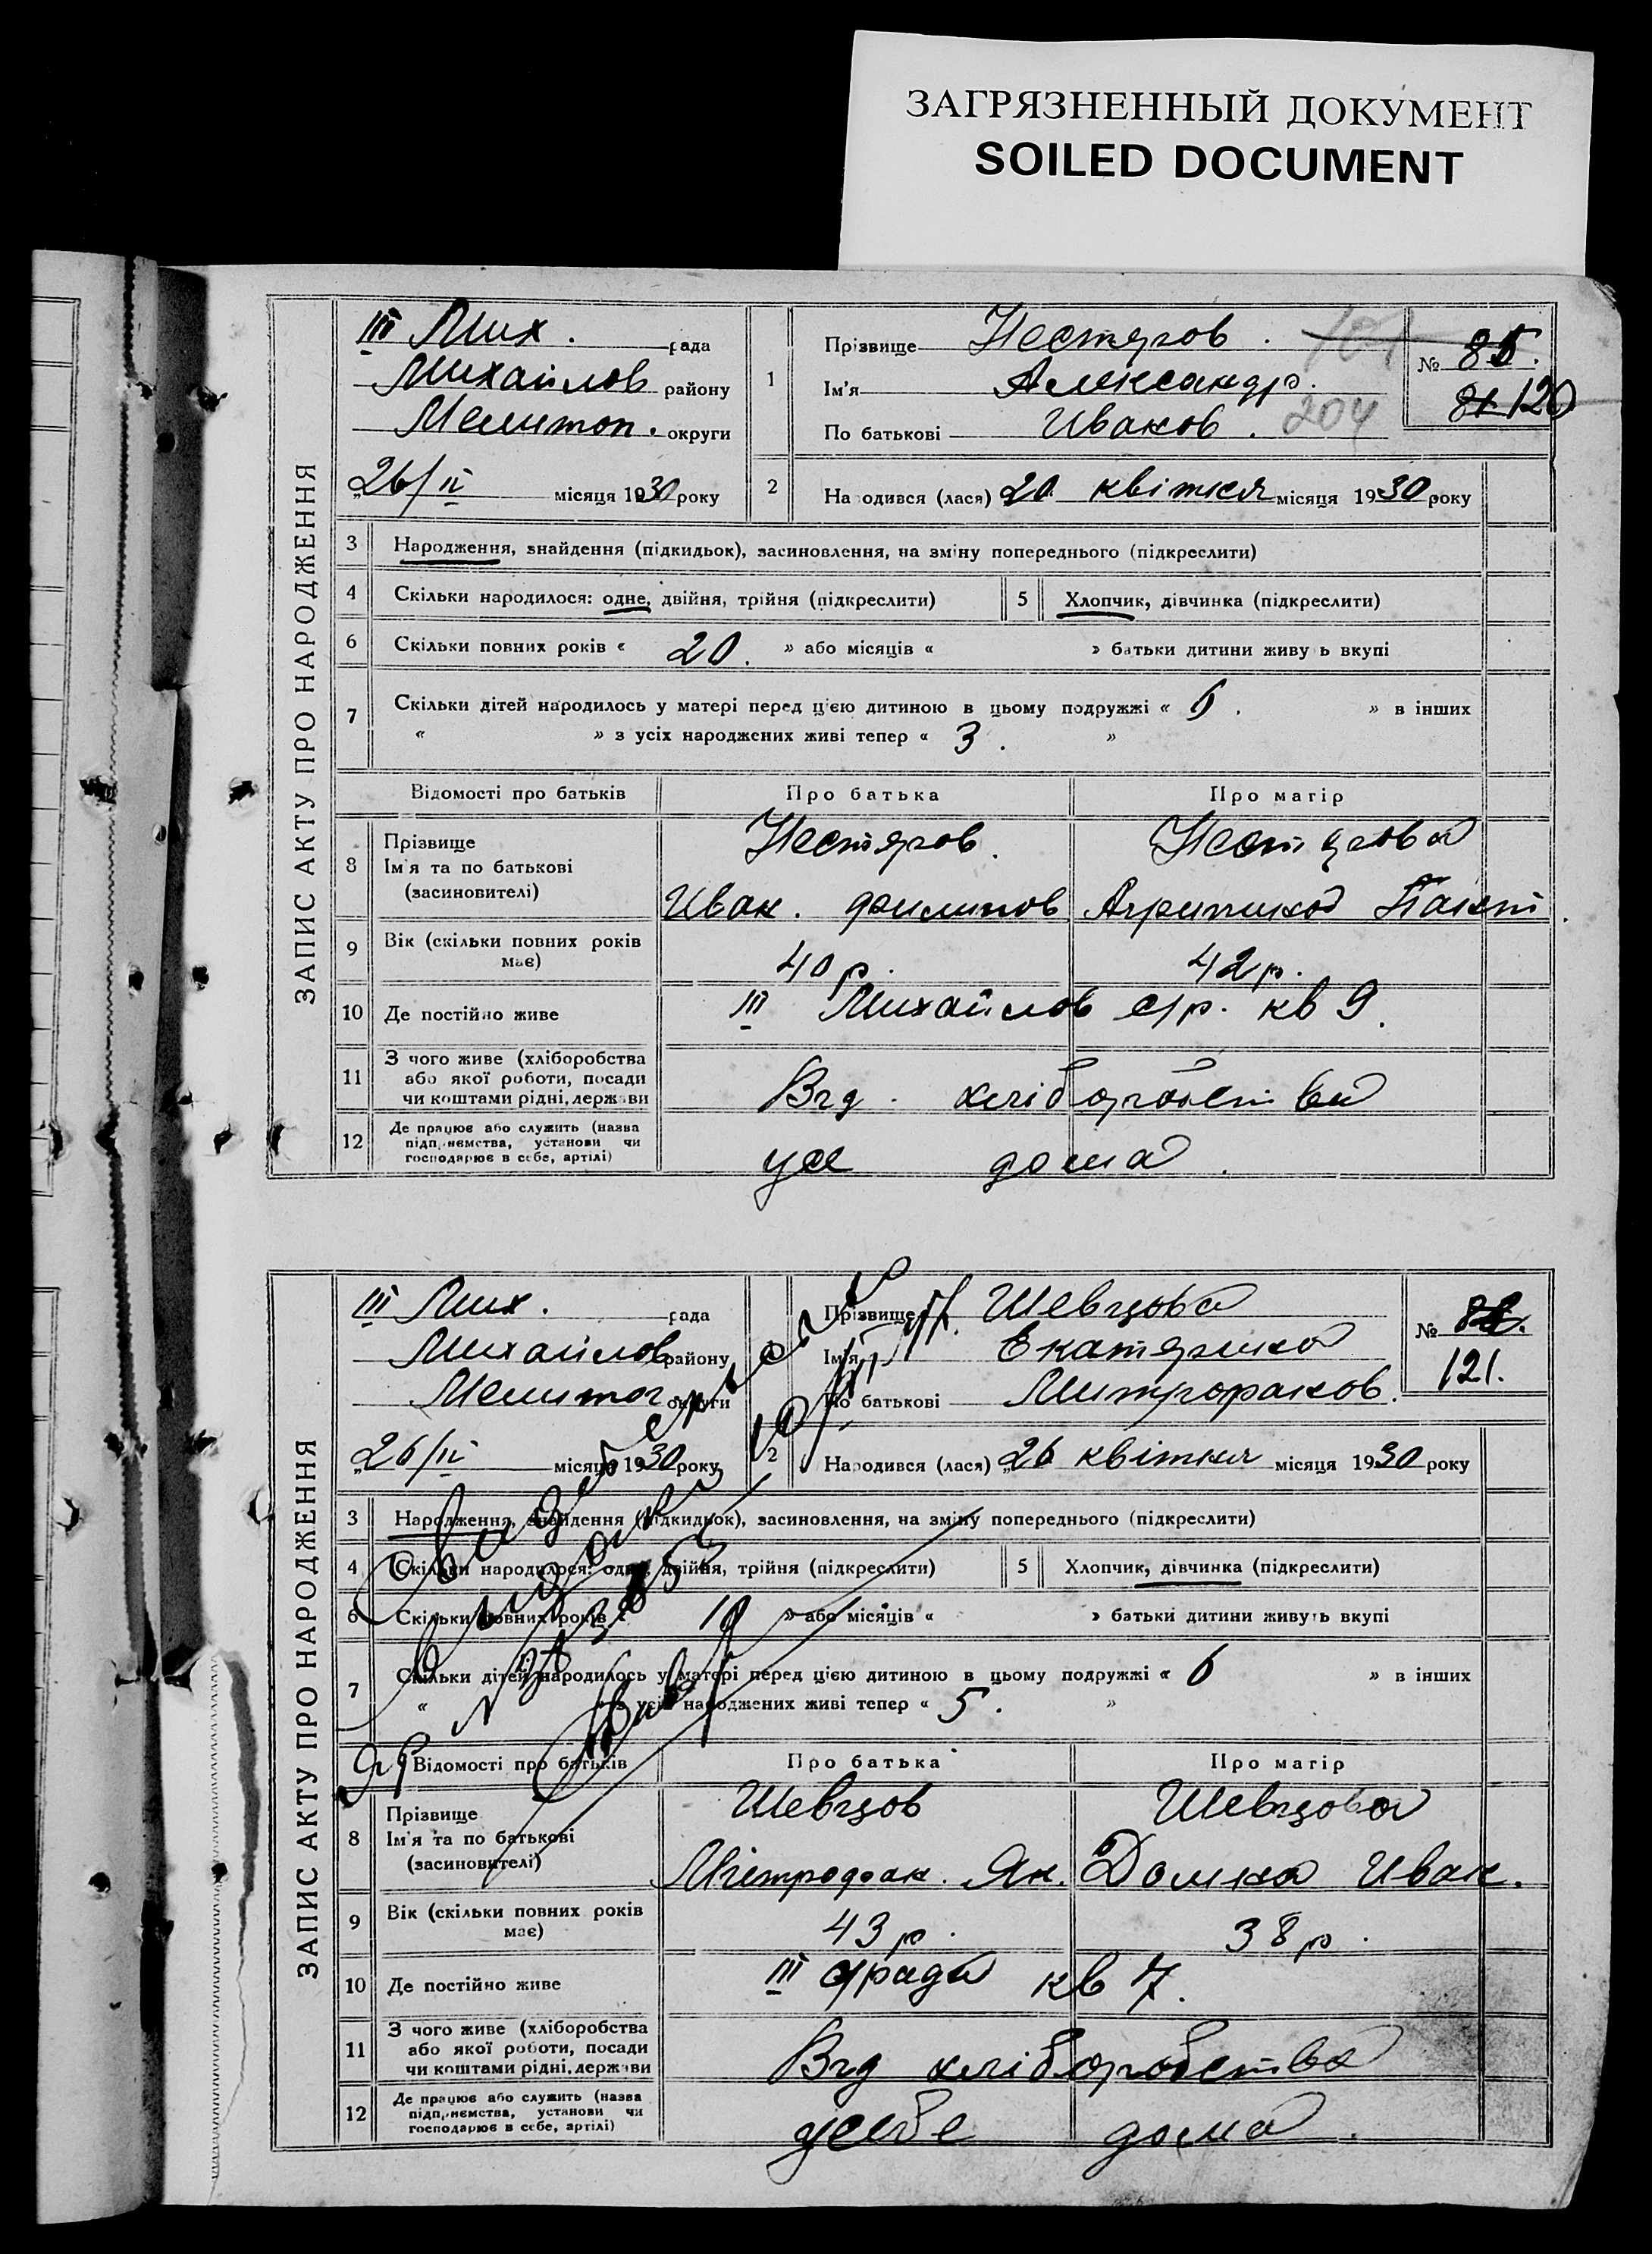 ЗАГРЯЗНЕННЫЙ ДОКУМЕНТ
SOILED DOCUMENT
ЗАПИС АКТУ ПРО НАРОДЖЕННЯ
III Мих. рада
Михайлов району
Мелитоп. округи
„26/IV місяця 1930 року
1 Прізвище Нестяров.
Ім'я Александр.
По батькові Иванов. 204
№ 85.
81 120
2 Народився (лася) 20 квітня місяця 1930 року
3 Народження, знайдення (підкидьок), засиновлення, на зміну попереднього (підкреслити)
4 Скільки народилося: одне, двійня, трійня (підкреслити) 5 Хлопчик, дівчинка (підкреслити)
6 Скільки повних років « 20. » або місяців « » батьки дитини живу ь вкупі
7 Скільки дітей народилось у матері перед цією дитиною в цьому подружжі « 6. » в інших
« » з усіх народжених живі тепер « 3. »
Відомості про батьків Про батька Про матір
8 Прізвище Нестяров. Нестярова
Ім'я та по батькові
(засиновителі) Иван. Филипов Агрипина
9 Вік (скільки повних років має) 40 р. 42 р.
10 Де постійно живе III Михайлов с/р. кв 9.
11 З чого живе (хліборобства
або якої роботи, посади
чи коштами рідні, держави Від. хліборобства
12 Де працює або служить (назва
підприємства, установи чи
господарює в себе, артілі) дома.
ЗАПИС АКТУ ПРО НАРОДЖЕННЯ
III Мих. рада
Михайлов району
Мелитоп округи
„26/IV місяця 1930 року
Прізвище Шевцова
Ім'я Екатярина
По батькові Митрофанов.
№ 82.
121.
2 Народився (лася) 26 квітня місяця 1930 року
3 Народження, знайдення (підкидьок), засиновлення, на зміну попереднього (підкреслити)
4 Скільки народилося: одне, двійня, трійня (підкреслити) 5 Хлопчик, дівчинка (підкреслити)
6 Скільки повних років « » або місяців « » батьки дитини живуть вкупі
7 Скільки дітей народилось у матері перед цією дитиною в цьому подружжі « 6 » в інших
« » з усіх народжених живі тепер « 5. »
Відомості про батьків Про батька Про матір
8 Прізвище Шевцов Шевцова
Ім'я та по батькові
(засиновителі) Мітрофан. Як. Домна Иван.
9 Вік (скільки повних років має) 43 р. 38 р.
10 Де постійно живе III с/рада кв 7.
11 З чого живе (хліборобства
або якої роботи, посади
чи коштами рідні, держави Від хліборобства
12 Де працює або служить (назва
підприємства, установи чи
господарює в себе, артілі) усебе дома.